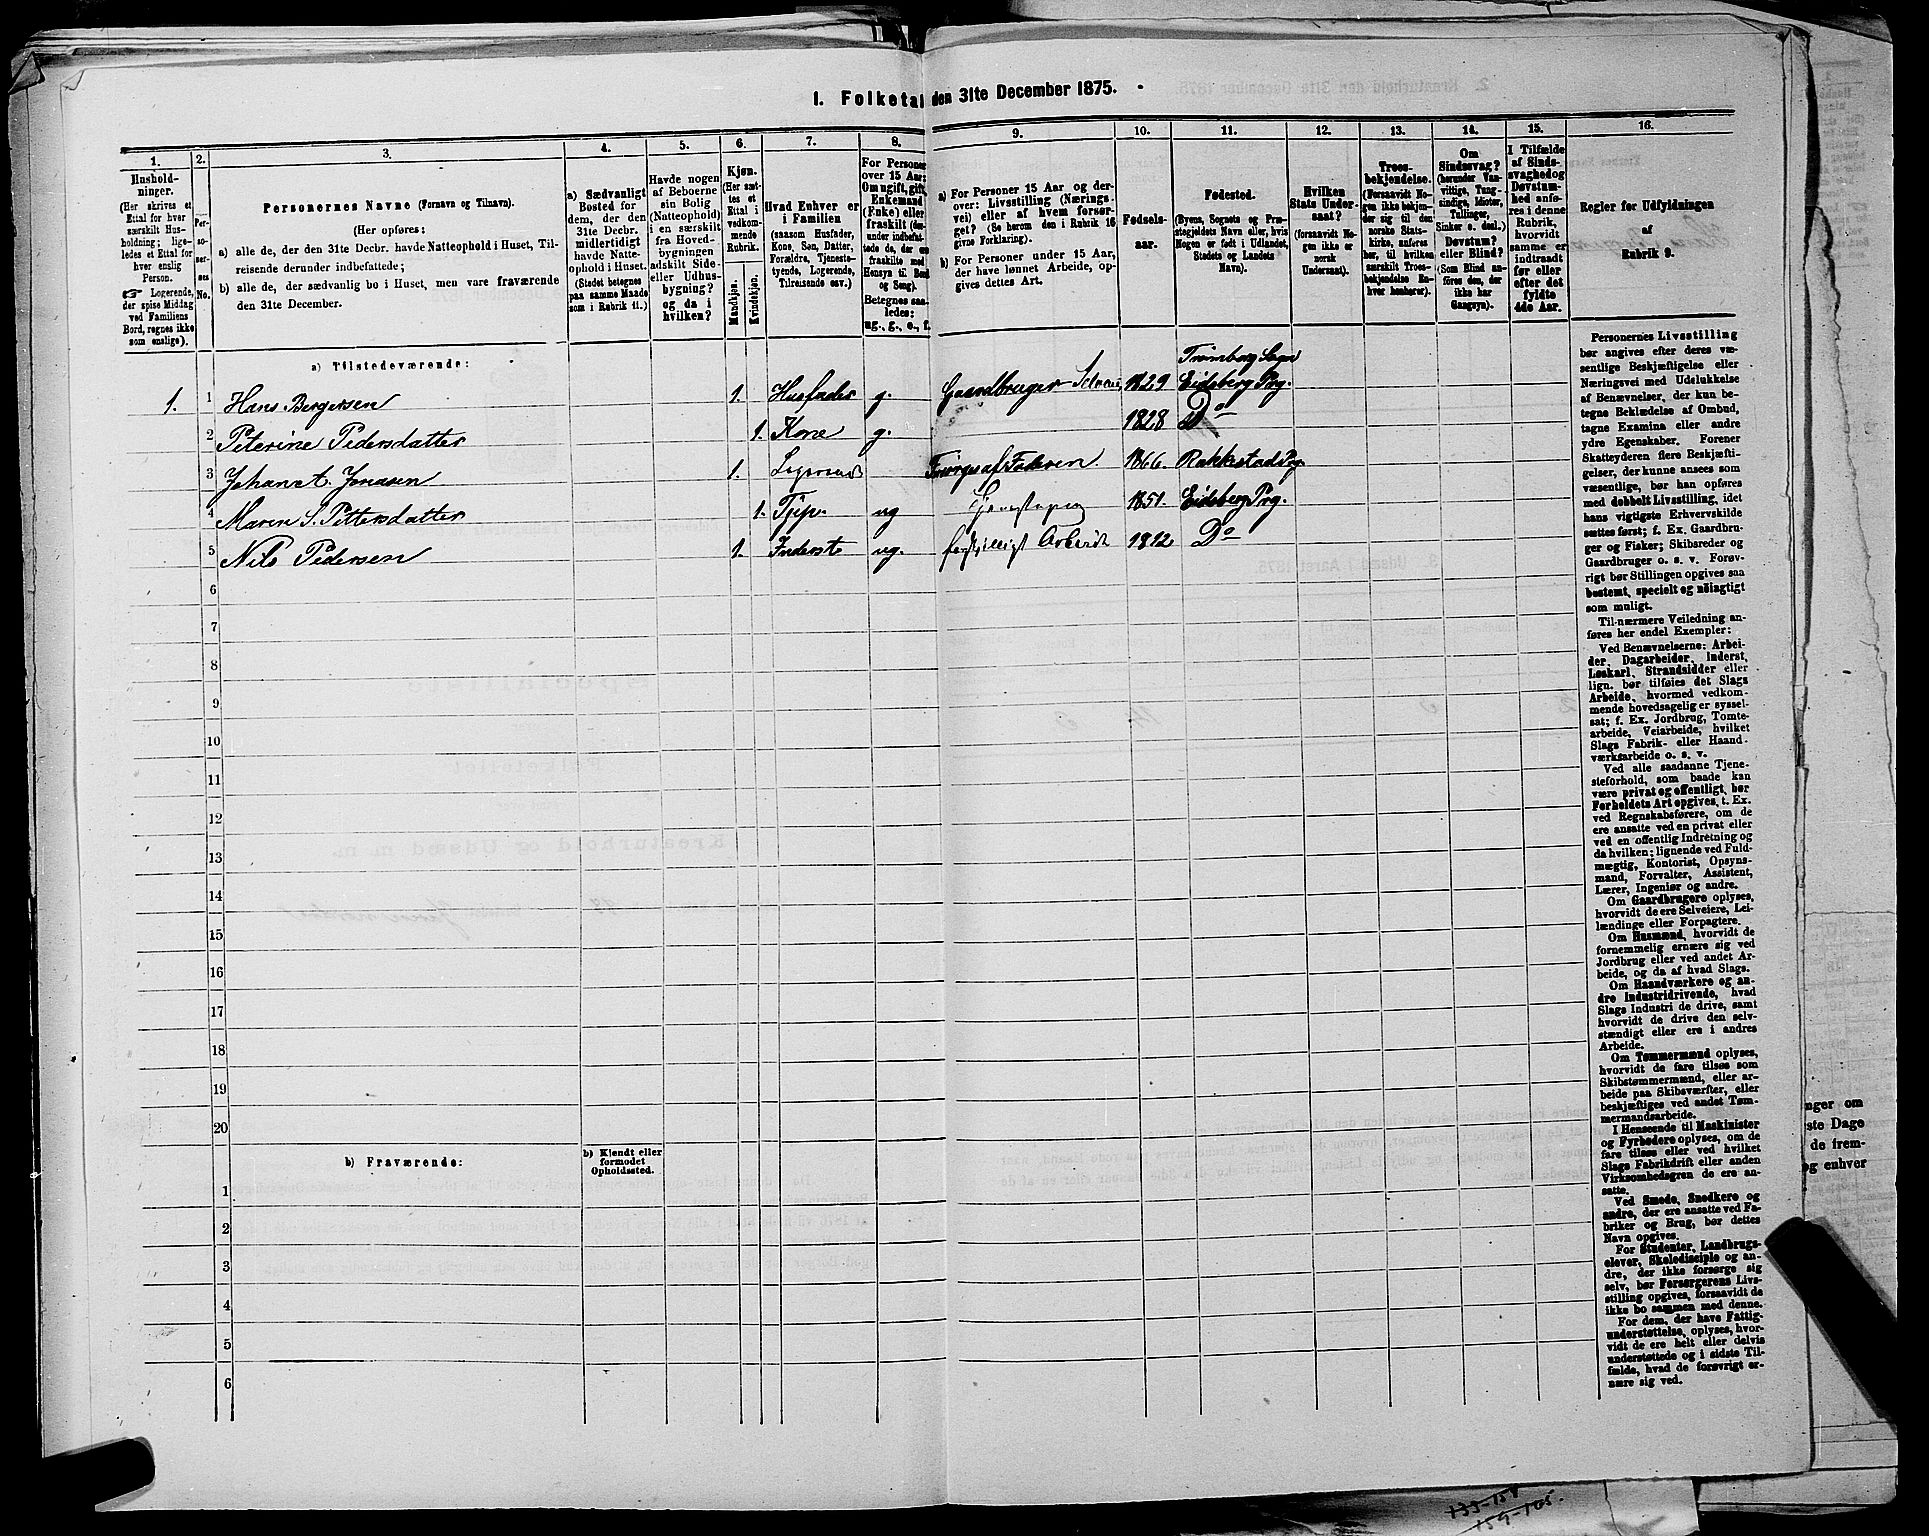 I. Folketal den 31te December 1875.
1.
2.
3.
4.
5.
6.
7.
8.
9.
10.
11.
12.
13.
14.
15.
16.
Hushold-
ninger.
(Her skrives et
Ettal for hver
særskilt Hus-
holdning; lige-
ledes et Ettal for
hver enslig
Person.
☞ Logerende,
der spise Middag
ved Familiens
Bord, regnes ikke
som enslige).
Per-
so-
ner-
nes
No.
Personernes Navne (Fornavn og Tilnavn).
(Her opføres:
a) alle de, der den 31te Decbr. havde Natteophold i Huset, Til-
reisende derunder indbefattede;
b) alle de, der sædvanlig bo i Huset, men vare fraværende
den 31te December.
a) Sædvanligt
Bosted for
dem, der den
31te Decbr.
midlertidigt
havde Natte-
ophold i Huset.
(Stedet betegnes
paa samme Maade
som i Rubrik 11.)
Havde nogen
af Beboerne
sin Bolig
(Natteophold)
i en særskilt
fra Hoved-
bygningen
adskilt Side-
eller Udhus-
bygning?
og da i
hvilken?
Kjøn.
(Her sæt-
tes et
Ettal i
vedkom-
mende
Rubrik.
Mandkjøn.
Kvindekjøn.
Hvad Enhver er
i Familien
(saasom Husfader,
Kone, Søn, Datter,
Forældre, Tjeneste-
tyende, Logerende,
Tilreisende osv.)
For Personer
over 15 Aar:
Om ugift, gift,
Enkemand
(Enke) eller
fraskilt (der-
under indbefat-
tede de, der ere
fraskilte med
Hensyn til Bord
og Seng).
Betegnes saa-
ledes:
ug., g., e., f.
a) For Personer 15 Aar og der-
over: Livsstilling (Nærings-
vei) eller af hvem forsør-
get (Se herom den i Rubrik 16
givne Forklaring).
b) For Personer under 15 Aar,
der have lønnet Arbeide, op-
gives dettes Art.
Fødsels-
aar.
Fødested.
(Byens, Sognets og Præ-
stegjeldets Navn eller, hvis
Nogen er født i Udlandet,
Stedets og Landets
Navn).
Hvilken
Stats Under-
saat?
(forsaavidt No-
gen ikke er
norsk
Undersaat).
Troes-
bekjendelse.
(Forsaavidt No-
gen ikke bekjen-
der sig til den
norske Stats-
kirke, anføres
her, til hvilken
særskilt Troes-
bekjendelse En-
hver henhører).
Om
Sindssvag?
(herunder Van-
vittige, Tung-
sindige, Idioter,
Tullinger,
Sinker o. desl.)
Døvstum?
eller Blind?
(Som Blind an-
føres den, der
ikke har
Gangsyn).
I Tilfælde
af Sinds-
svaghed og
Døvstum-
hed anfø-
res i denne
Rubrik,
hvorvidt
samme er
indtraadt
før eller
efter det
fyldte
4de Aar.
Regler for Udfyldningen
af
Rubrik 9.
a) Tilstedeværende:
1. 1 Hans Bergersen 1. Husfader g. Gaardbruger Selveier 1829 Trømborg Sogn Eidsberg Prg.
2 Peterine Pedersdatter 1. Kone g. 1828 Do
3 Johan A. Jonasen 1. Logerende Forsørges af Faderen. 1866. Rakkestad Prg.
4 Maren S. Pettersdatter 1. Tjep. ug 1851. Eidsberg Prg.
5 Nils Pedersen 1. Inderst ug. forskjelligt Arbeide 1812 Do
6
7
8
9
10
11
12
13
14
15
16
17
18
19
20
b) Fraværende:
b) Kjendt eller
formodet
Opholdssted.
1
2
3
4
5
6
Personernes Livsstilling
bør angives efter deres væ-
sentlige Beskjæftigelse eller
Næringsvei med Udelukkelse
af Benævnelser, der kun be-
tegne Beklædelse af Ombud,
tagne Examina eller andre
ydre Egenskaber. Forener
Skatteyderen flere Beskjæfti-
gelser, der kunne ansees som
væsentlige, bør han opføres
med dobbelt Livsstilling, idet
hans vigtigste Erhvervskilde
sættes først; f. Ex. Gaardbru-
ger og Fisker; Skibsreder og
Gaardbruger o. s. v. Forøv-
rigt bør Stillingen opgives saa
bestemt, specielt og nøiagtigt
som muligt.
Til nærmere Veiledning an-
føres her endel Exempler:
Ved Benævnelserne: Arbei-
der, Dagarbeider, Inderst,
Løskarl, Strandsidder eller
lign. bør tilføies det Slags
Arbeide, hvormed vedkom-
mende hovedsagelig er syssel-
sat; f. Ex. Jordbrug, Tomte-
arbeide, Veiarbeide, hvilket
Slags Fabrik- eller Haand-
værksarbeide o. s. v.
Ved alle saadanne Tjene-
steforhold, som baade kan
være privat og offentligt, bør
Forholdets Art opgives, t. Ex.
ved Regnskabsførere, om de
ere ansatte ved en privat eller
ved en offentlig Indretning og
da hvilken; lignende ved Fuld-
mægtig, Kontorist, Opsyns-
mand, Forvalter, Assistent,
Lærer, Ingeniør og andre.
Om Gaardbrugere oplyses,
hvorvidt de ere Selveiere, Lei-
lændinge eller Forpagtere.
Om Husmænd, hvorvidt de
fornemmelig ernære sig ved
Jordbrug eller ved andet Ar-
beide, og da af hvad Slags.
Om Haandværkere og an-
dre Industridrivende, hvad
Slags Industri de drive, samt
hvorvidt de drive den selv-
stændigt eller ere i andres
Arbeide.
Om Tømmermænd oplyses,
hvorvidt de fare tilsøs som
Skibstømmermænd, eller ar-
beide paa Skibsværfter, eller
beskjæftiges ved andet Tøm-
mermandsarbeide.
I Henseende til Maskinister
og Fyrbødere oplyses, om de
fare tilsøs eller ved hvilket
Slags Fabrikdrift eller anden
Virksomhedsgren de ere an-
satte.
Ved Smede, Snedkere og
andre, der ere ansatte ved Fa-
briker og Brug, bør dettes
Navn opgives.
For Studenter, Landbrugs-
elever, Skoledisciple og an-
dre, der ikke forsørge sig
selv, bør Forsørgerens Livs-
stilling opgives, forsaavidt de
ikke bo sammen med denne.
For dem, der have Fattig-
understøttelse, oplyses, hvor-
vidt de ere helt eller delvis
understøttede og i sidste Til-
fælde, hvad de forøvrigt er-
nære sig ved.
nger om
ste Dage
de frem-
og enhver
159-165.